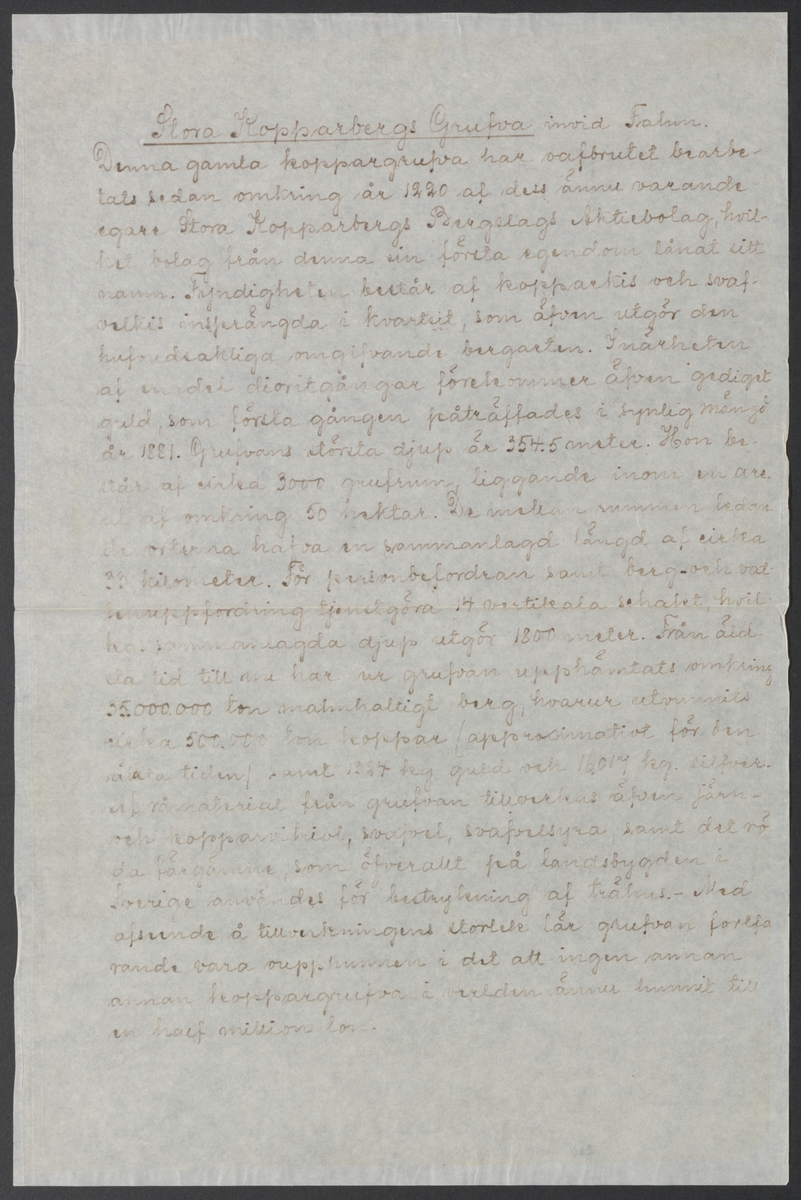 Stora Kopparbergs Grufva invid Falun.
Denna gamla koppargrufva har oafbrutet bearbe-
tats sedan omkring år 1220 af dess ännu varande
egare Stora Kopparbergs Bergslags Aktiebolag, hvil-
ket bolag från denna sin första egendom lånat sitt
namn. Fyndigheten består af kopparkis och svaf-
velkis insprängda i kvartsit, som äfven utgör den
hufvudsakliga omgifvande bergarten. I närheten
af en del dioritgångar förekommer äfven gediget
guld, som första gången påträffades i synlig mängd
år 1881. Grufvans största djup är 354.5 meter. Hon be-
står af cirka 3000 grufrum, liggande inom en are-
al af omkring 50 hektar. De mellan rummen ledan-
de orterna hafva en sammanlagd längd af cirka
33 kilometer. För personbefordran samt berg- och vat-
tenuppfordring tjenstgöra 14 vertikala schakt, hvil-
kas sammanlagda djup utgör 1800 meter. Från äld-
sta tid till nu har ur grufvan upphämtats omkring
35.000.000 ton malmhaltigt berg, hvarur utvunnits
cirka 500.000 ton koppar /approximativt för den
äldsta tiden/ samt 1324 kg guld och 16,017 kg. silfver.
Af råmaterial från grufvan tillverkas äfven järn-
och kopparvitriol, svafvel, svafvelsyra, samt det rö-
da färgämne, som öfverallt på landsbygden i
Sverige användes för bestrykning af trähus.- Med
afseende å tillverkningens storlek lär grufvan fortfa
rande vara oupphunnen i det att ingen annan
annan koppargrufva i verlden ännu hunnit till
en half million ton.